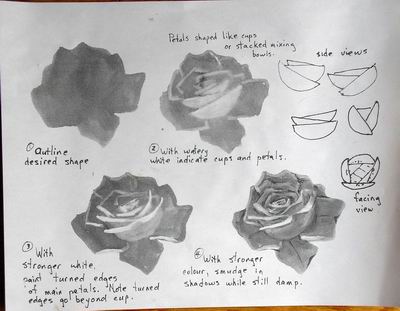 Petals shaped like cups
or stacked mixing
bowls.
side views
① Outline
desired shape
② With watery
white indicate cups and petals.
facing
view
③ With
stronger white,
paint turned edges
of main petals. Note turned
edges go beyond cup.
④ With stronger
colour, smudge in
shadows while still damp.